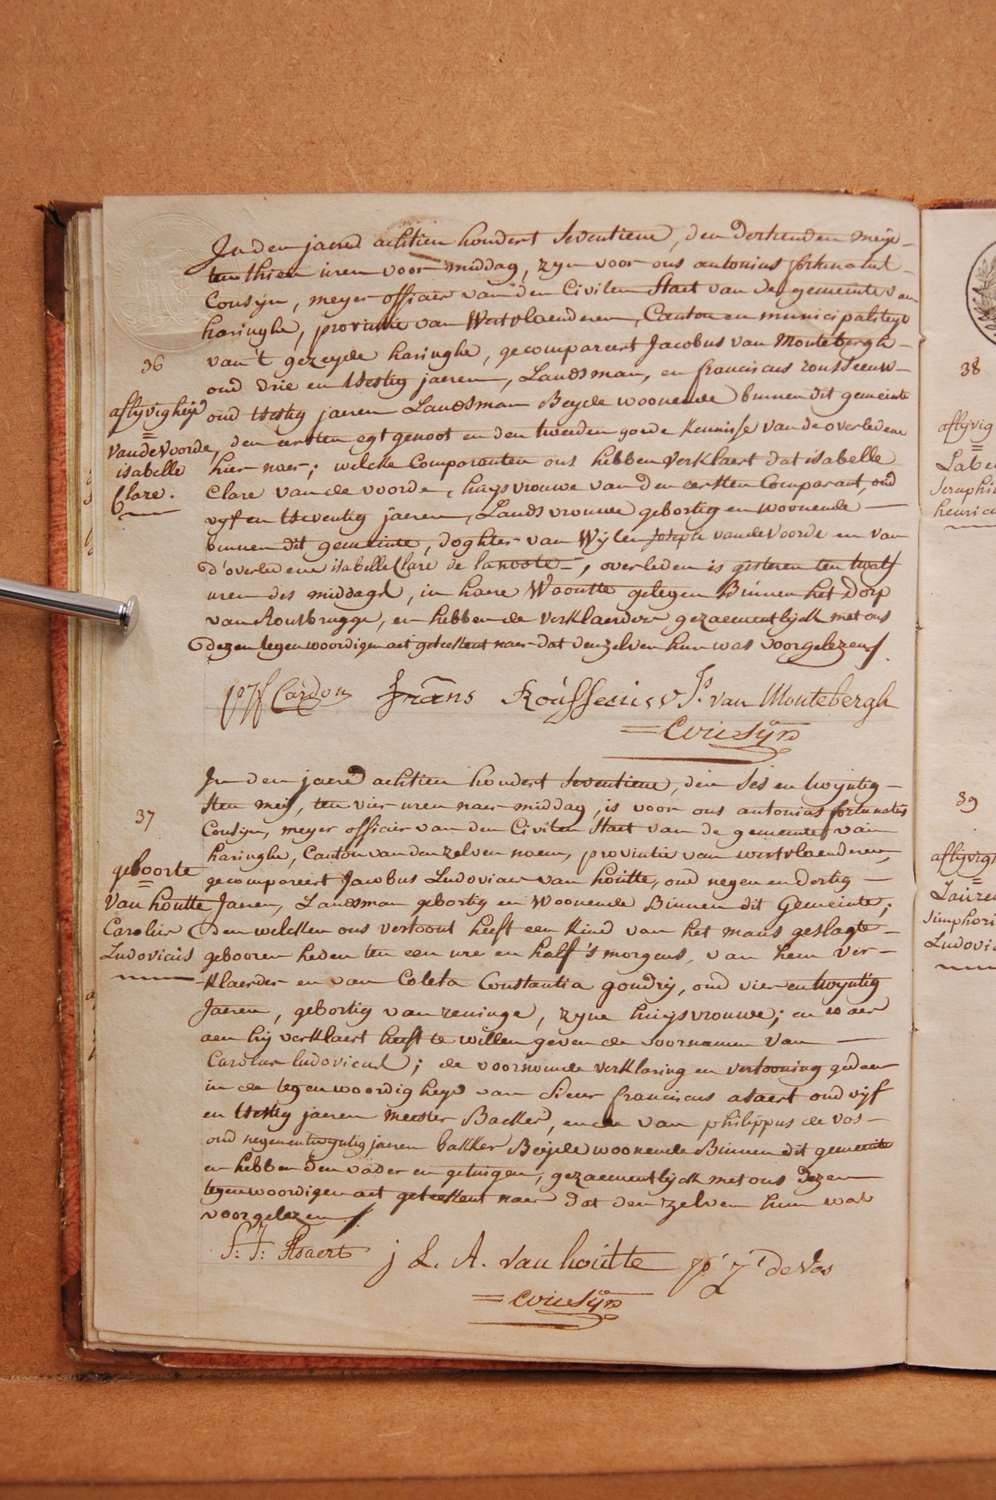 36
aflijvigheijd
=
Vande Voorde,
isabelle
Clare.
In den jaere achtien hondert Seventiene, den dertienden meije
ten thien uren voor middag, zyn voor ons antonius fortunatus
Cousyn, meyer officier van den Civilen Staet van de gemeente van
haringhe, provintie van Westvlaenderen, Canton en municipaliteyt
van't gezeyde haringhe, gecompareert Jacobus van Montebergh
oud drie en tsestig jaeren, Landsman, en franciscus rousseeuw
oud tsestig jaeren Landsman Beyde woonende binnen dit gemeente
den eersten egtgenoot en den tweeden goede kennisse van de overledene
hier naer; welcke Comparanten ons hebben verklaert dat isabelle
Clare van de voorde, huysvrouwe van den eersten Comparant, oud
vyf en tseventig jaeren, Landsvrouwe gebortig en woonende
binnen dit gemeente, doghter van Wylen Joseph vande Voorde en van
d'overledene isabelle Clare de lanoote, overleden is gisteren ten twalf
uren des middags, in haere Woonste gelegen Binnen het dorp
van Rousbrugge, en hebben de verklaerders gezaementlyck met ons
dezen tegenwoordigen act geteekent naer dat denzelven hun was voorgelezen
Cardon frans Roússeeuw Js. van Montebergh
= Cousijn
37
geboorte
=
Van houtte
Carolus
Ludovicus
In den jaere achtien hondert Seventiene, den ses en twyntig
sten meij, ten vier uren naer middag, is voor ons antonius fortunatus
Cousyn, meyer officier van den Civilen Staet van de gemeente van
haringhe, Canton van den zelven naem, provintie van westvlaenderen,
gecompareert Jacobus Ludovicus van houtte, oud negen en dertig
Jaeren, Landsman gebortig en Woonende Binnen dit Gemeente;
den welcken ons vertoont heeft een kind van het mans geslagte
gebooren heden ten een ure en half 's morgens, van hem ver-
klaerder en van Coleta Constantia goudrij, oud vier en twyntig
Jaeren, gebortig van reninge, zyne huysvrouwe; en waer
aen hij verklaert heeft te willen geven de voornamen van
Carolus ludovicus; de voornoemde verklaring en vertooning gedaen
in de tegenwoordigheyd van Sieur franciscus asaert oud vijf
en tsestig jaeren meester Backer, ende van philippus de vos
oud negenentwyntig jaeren bakker Beyde woonende Binnen dit gemeente
en hebben den vader en getuigen, gezaementlyck met ons dezen
tegenwoordigen act geteekent naer dat den zelven hun was
voorgelezen
F: J: Asaert j L. A. van houtte p j de Vos
= Cousijn
38
aflijvig
=
Seraphi
henrica
39
aflijvig
=
Simphori
Ludovic